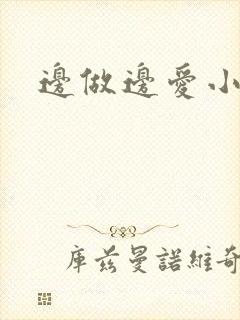 邊做邊愛小
庫茲曼諾維奇